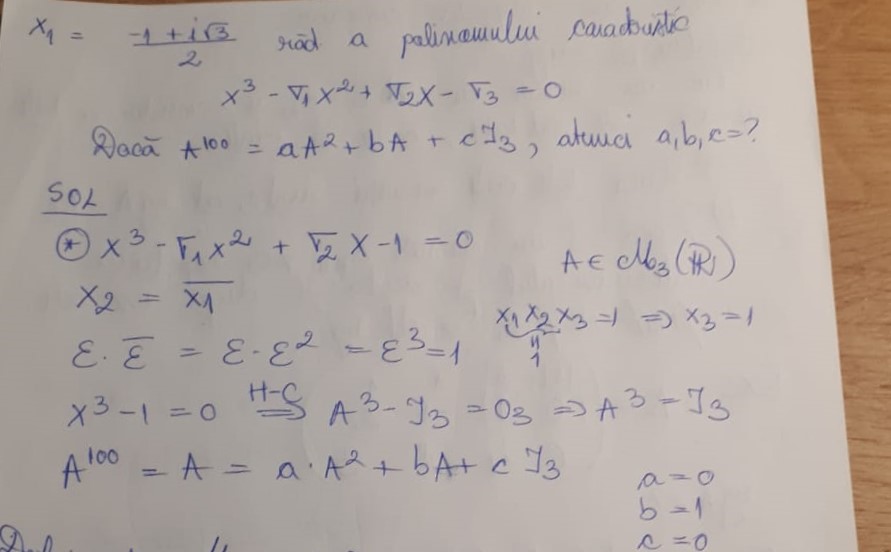 x₁ = (-1+i√3)/2 răd a polinomului caracteristic
x³ - ∇₁x² + ∇₂x - ∇₃ = 0
Dacă A¹⁰⁰ = aA² + bA + cI₃, atunci a,b,c=?
SOL
⊛ x³ - ∇₁x² + ∇₂x - 1 = 0
A ∈ M₃(ℝ)
x₂ = x̄₁
x₁x₂x₃ = 1 ⇒ x₃ = 1
ε·ε̄ = ε·ε² = ε³ = 1
1
x³ - 1 = 0 H-C ⇒ A³ - I₃ = O₃ ⇒ A³ = I₃
A¹⁰⁰ = A = a·A² + bA + cI₃
a = 0
b = 1
c = 0